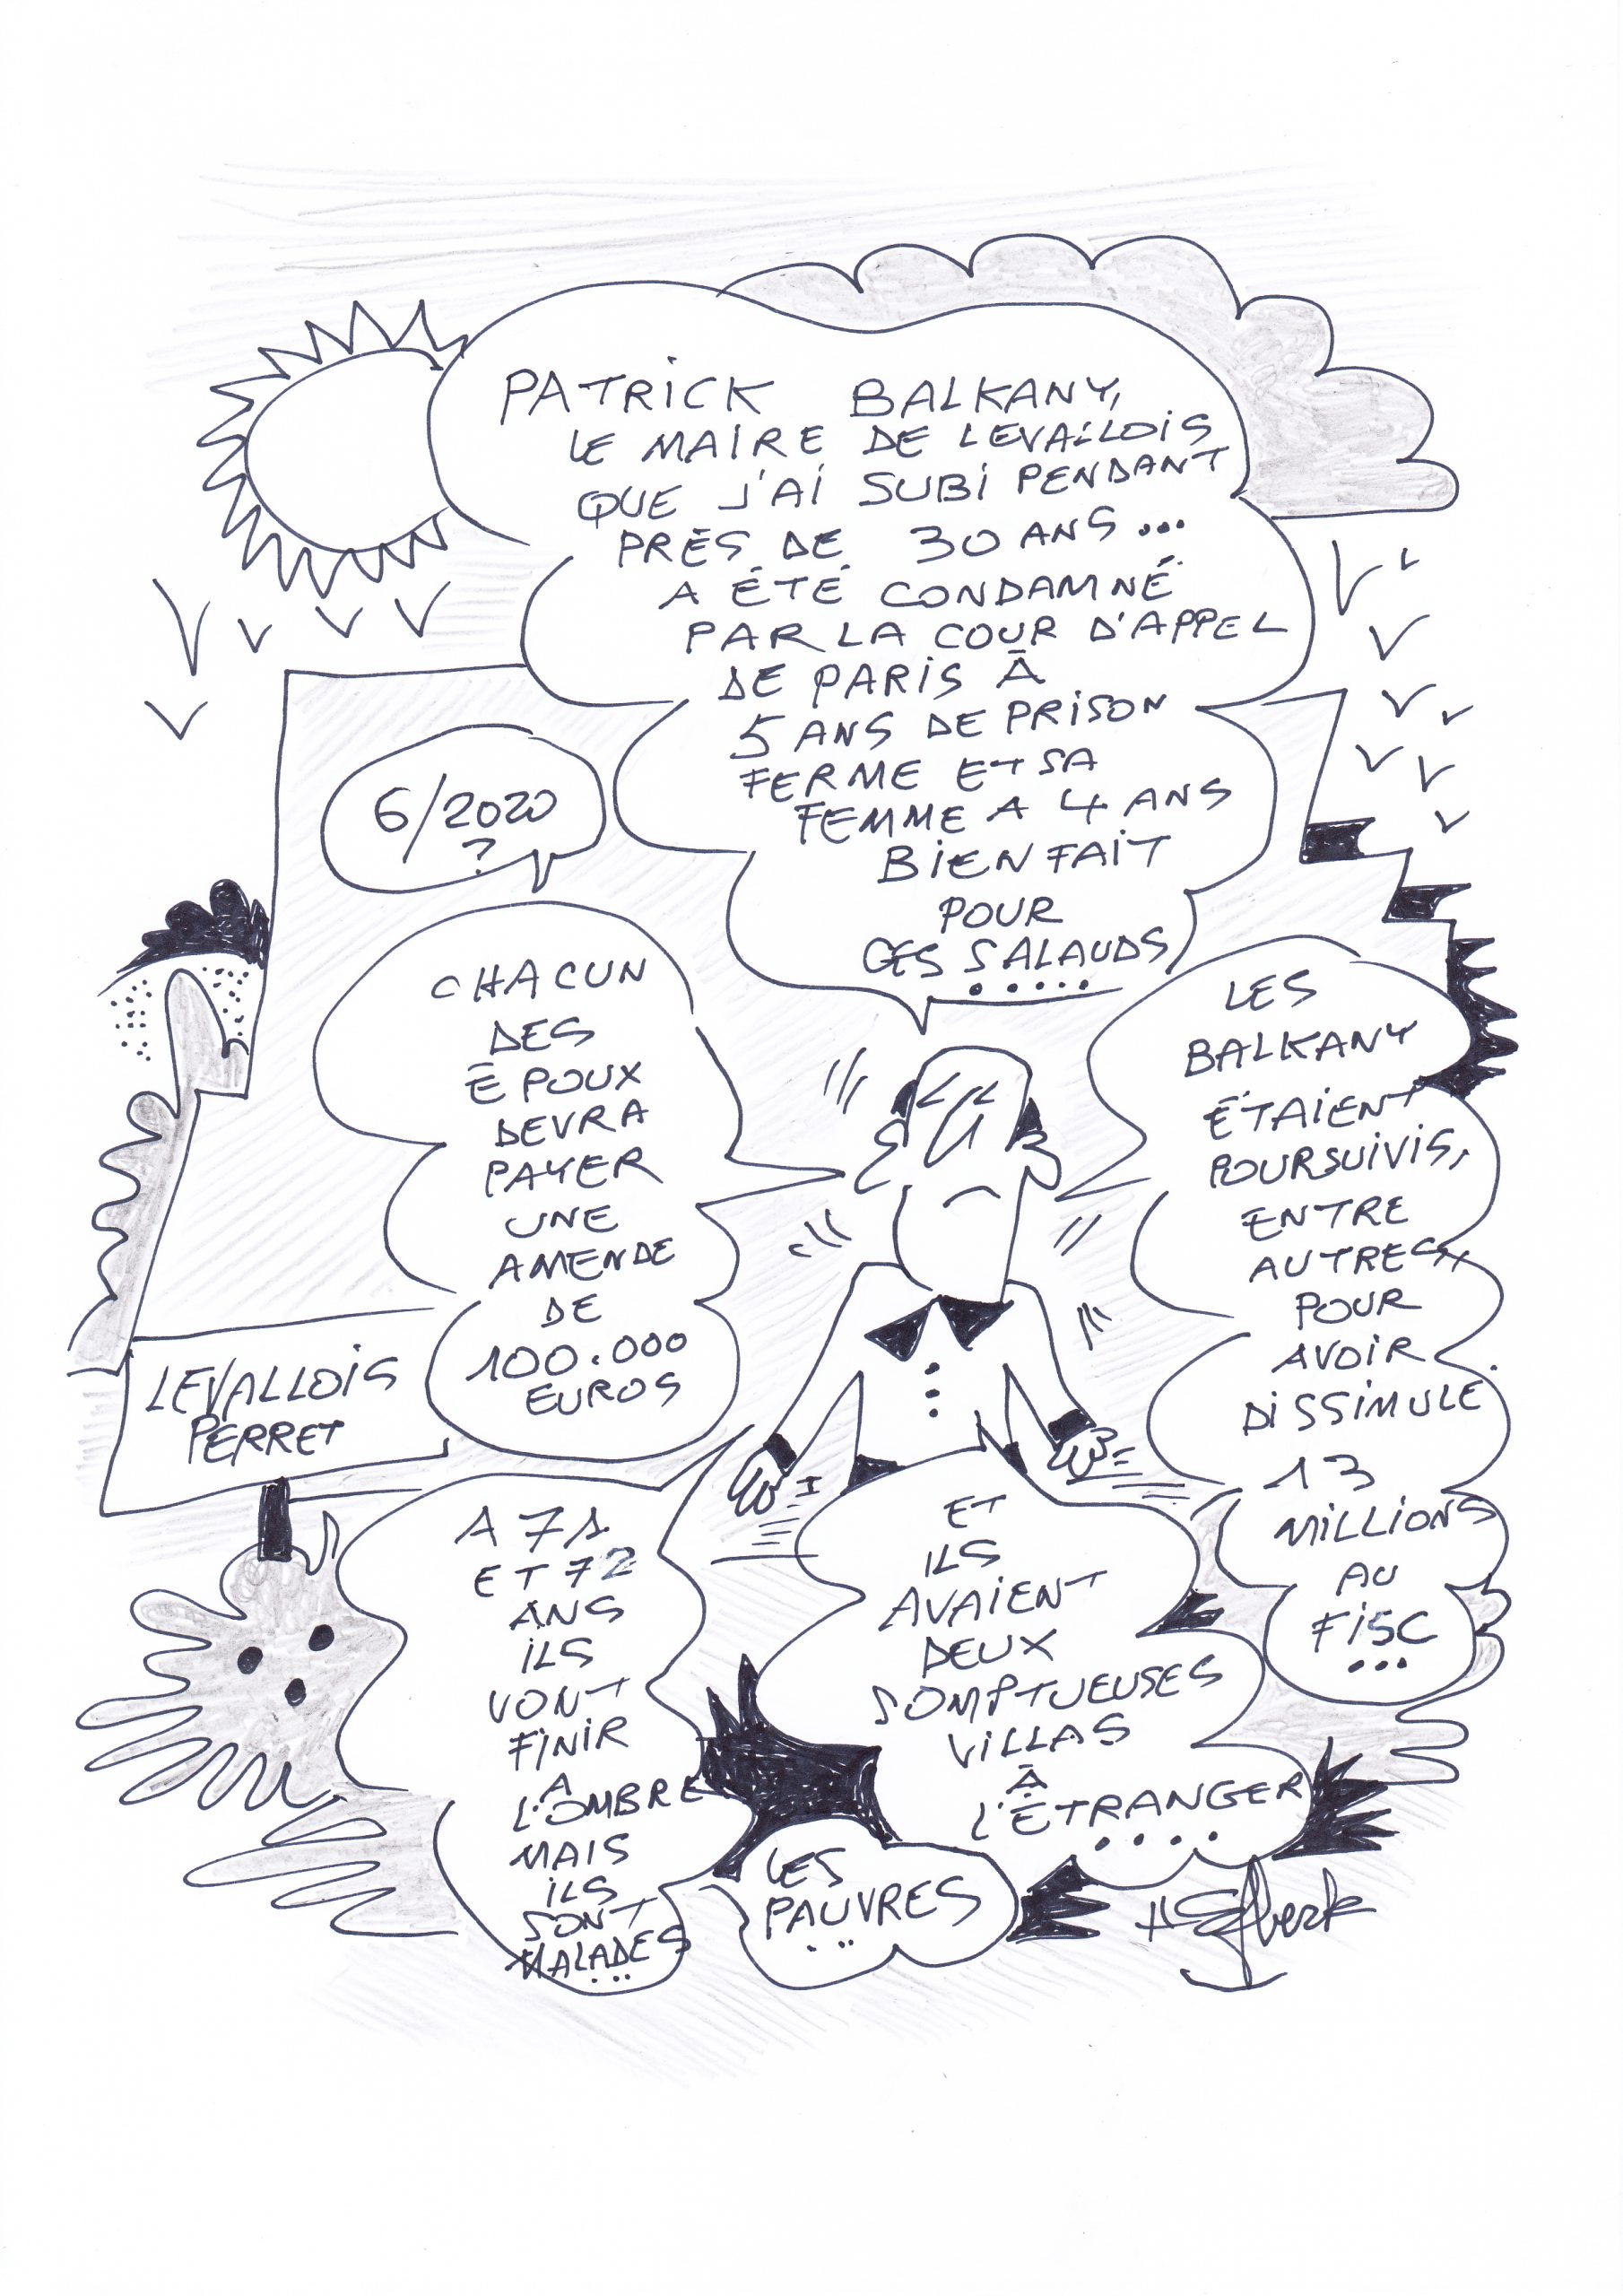 PATRICK BALKANY,
LE MAIRE DE LEVALLOIS
QUE J'AI SUBI PENDANT
PRÈS DE 30 ANS...
A ÉTÉ CONDAMNÉ
PAR LA COUR D'APPEL
DE PARIS À
5 ANS DE PRISON
FERME ET SA
FEMME A 4 ANS
BIEN FAIT
POUR
CES SALAUDS
.....
6/2020
?
CHACUN
DES
ÉPOUX
DEVRA
PAYER
UNE
AMENDE
DE
100.000
EUROS
LES
BALKANY
ÉTAIENT
POURSUIVIS,
ENTRE
AUTRES
POUR
AVOIR
DISSIMULE
13
MILLIONS
AU
FISC
...
LEVALLOIS
PERRET
A 71
ET 72
ANS
ILS
VONT
FINIR
A
L'OMBRE
MAIS
ILS
SONT
MALADES
...
ET
ILS
AVAIENT
DEUX
SOMPTUEUSES
VILLAS
À
L'ÉTRANGER
....
LES
PAUVRES
...